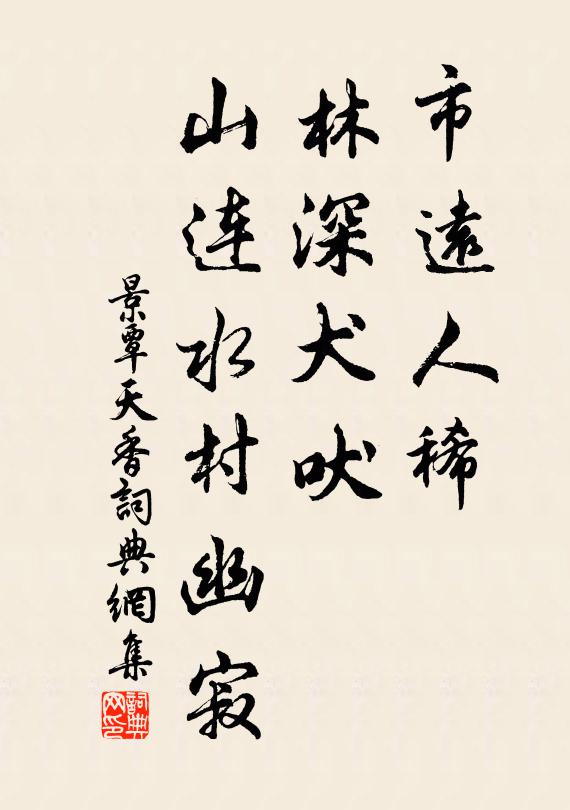 市遠人稀
林深犬吠
山連水村幽寂
景覃天香詞典網集
詞典
网印